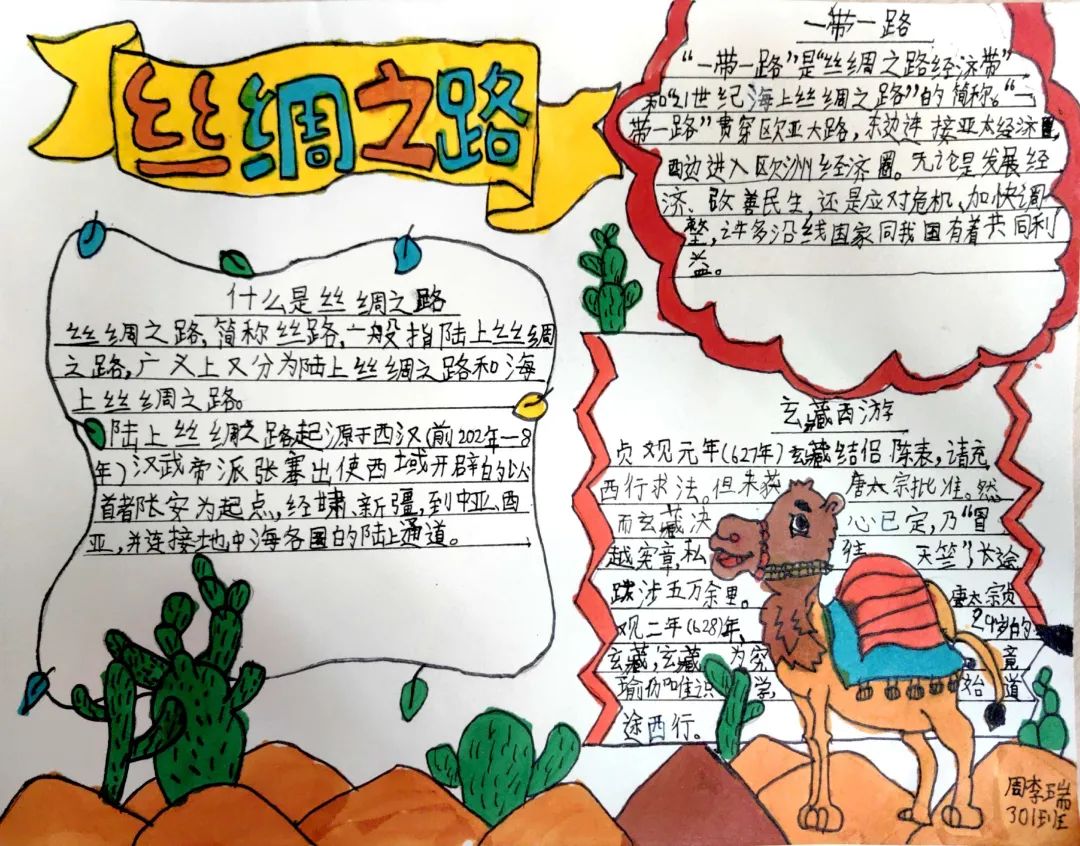 丝绸之路
什么是丝绸之路
丝绸之路,简称丝路,一般指陆上丝绸
之路,广义上又分为陆上丝绸之路和海
上丝绸之路。
陆上丝绸之路起源于西汉(前202年—8
年)汉武帝派张骞出使西域开辟的以
首都长安为起点,经肃、新疆,到中亚、西
亚,并连接地中海各国的陆上通道。
一带一路
“一带一路”是“丝绸之路经济带”
和“21世纪海上丝绸之路”的简称。“一
带一路”贯穿欧亚大路,东边连接亚太经济圈,
西边进入欧洲经济圈。无论是发展经
济、改善民生,还是应对危机、加快调
整,许多沿线国家同我国有着共同利
益。
玄藏西游
贞观元年(627年)玄藏结侣陈表,请允
西行求法。但未获唐太宗批准。然
而玄藏决心已定,乃“冒
越宪章,私往天竺”,长途
跋涉五万余里。唐太宗贞
观二年(628)年,29岁的
玄藏,玄藏为究竟
瑜伽唯识学,始道
途西行。
周李瑞
301班